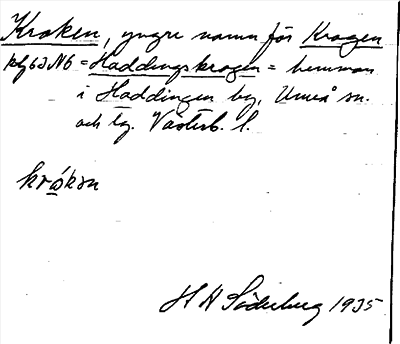 Kraken, yngre namn för Kragen
klj 63 N6 = Haddingskragen = hemman
i Haddingen by, Umeå sn.
och tg. Västerb. l.
kråkən
H H Söderberg 1935